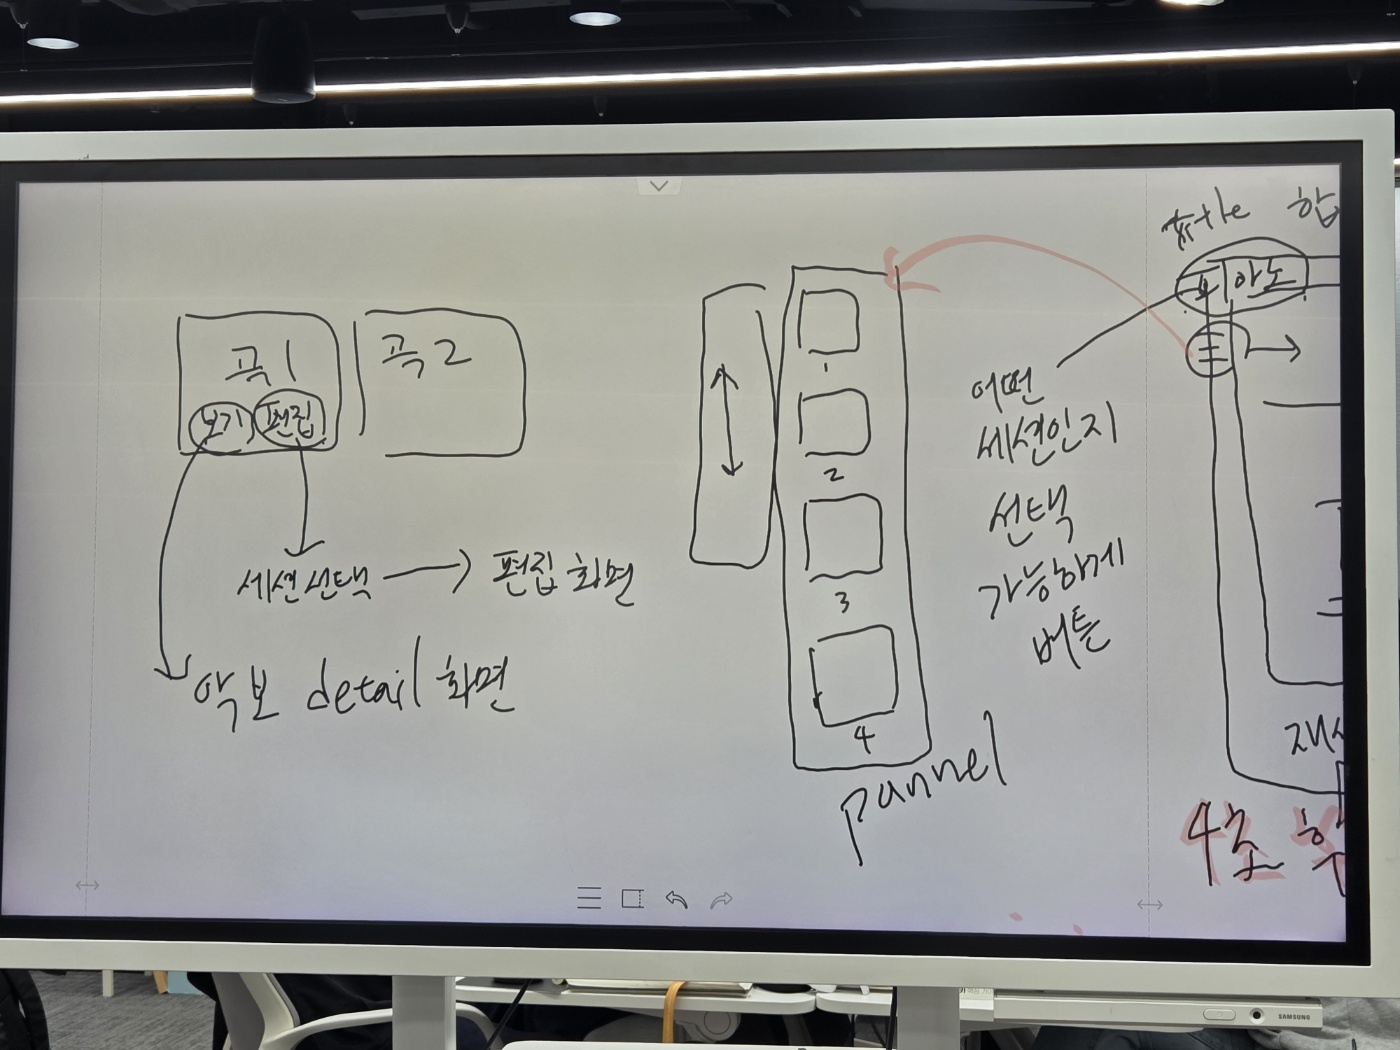 곡1
보기 편집
곡2
세션선택 → 편집 화면
악보 detail 화면
1
2
3
4
pannel
어떤
세션인지
선택
가능하게
버튼
title 합
피아노
4초 후
SAMSUNG